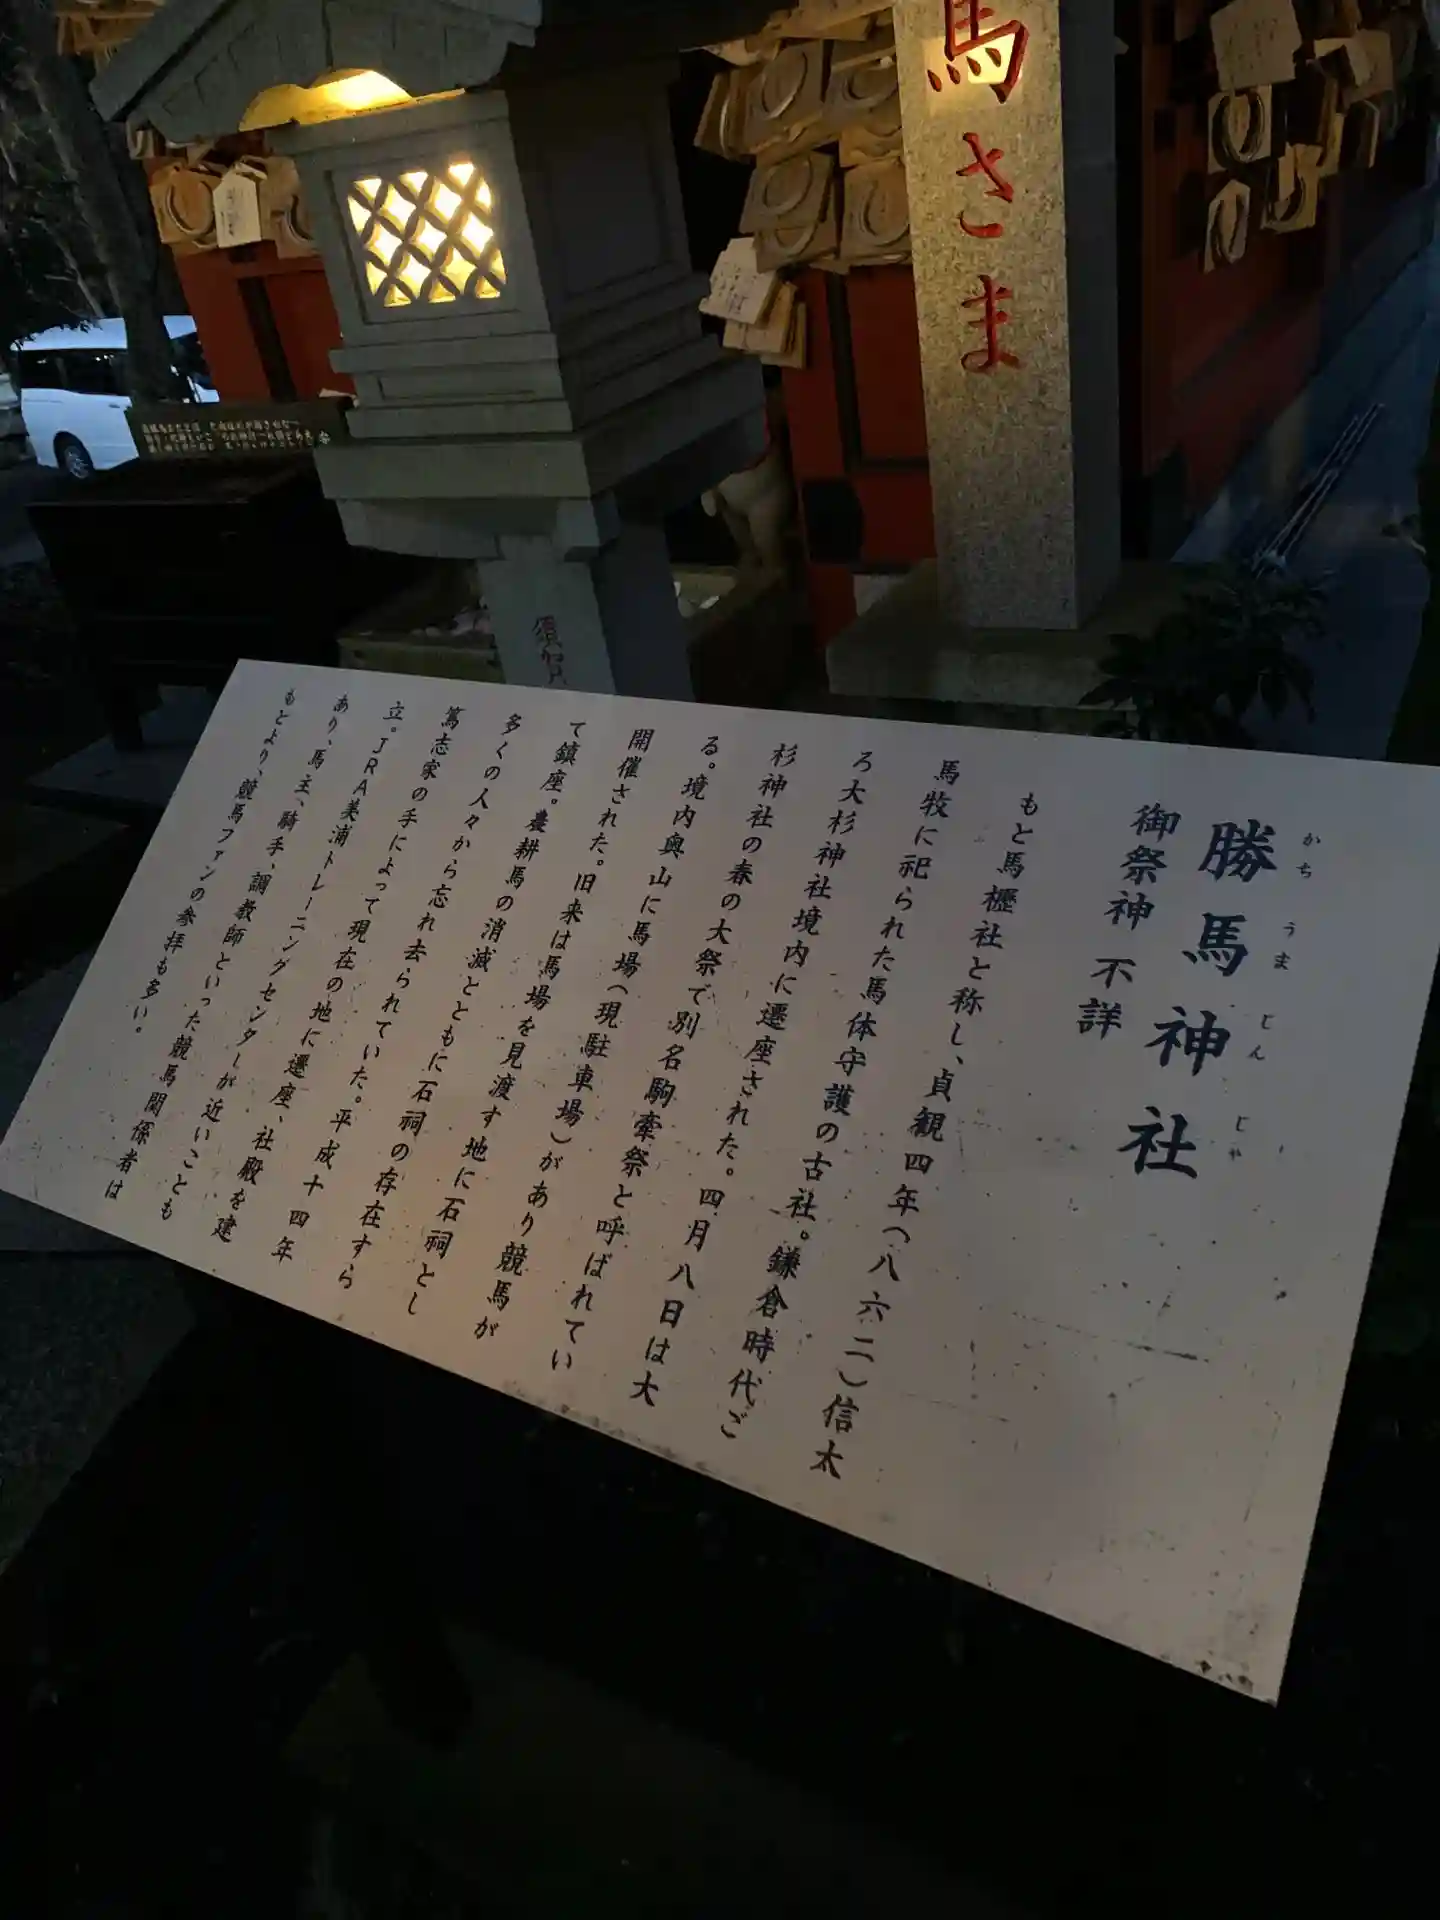 馬さま
勝馬神社
かちうまじんじゃ
御祭神 不詳
もと馬櫪社と称し、貞観四年(八六二)信太
馬牧に祀られた馬体守護の古社。鎌倉時代ご
ろ大杉神社境内に遷座された。四月八日は大
杉神社の春の大祭で別名駒牽祭と呼ばれてい
る。境内奥山に馬場(現駐車場)があり競馬が
開催された。旧来は馬場を見渡す地に石祠とし
て鎮座。農耕馬の消滅とともに石祠の存在すら
多くの人々から忘れ去られていた。平成十四年
篤志家の手によって現在の地に遷座、社殿を建
立。JRA美浦トレーニングセンターが近いことも
あり、馬主、騎手、調教師といった競馬関係者は
もとより、競馬ファンの参拝も多い。
須賀